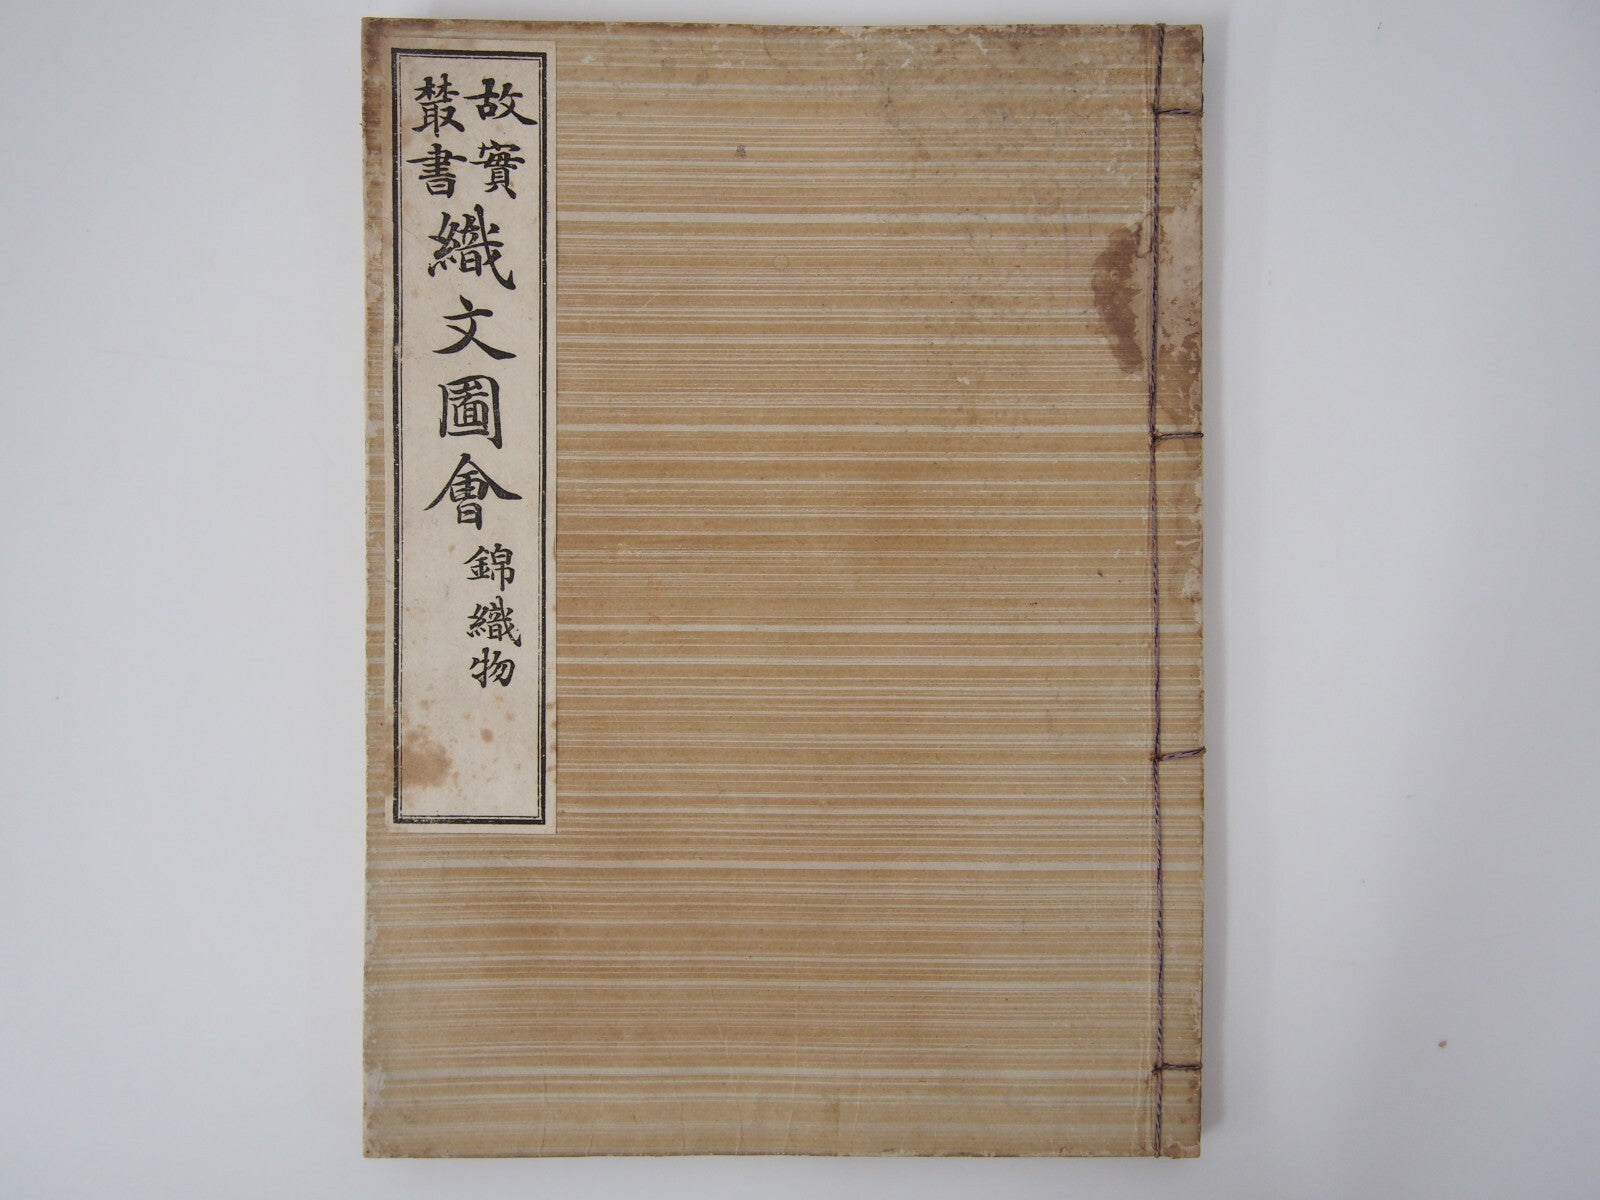 故實
叢書
織文圖會
錦織物